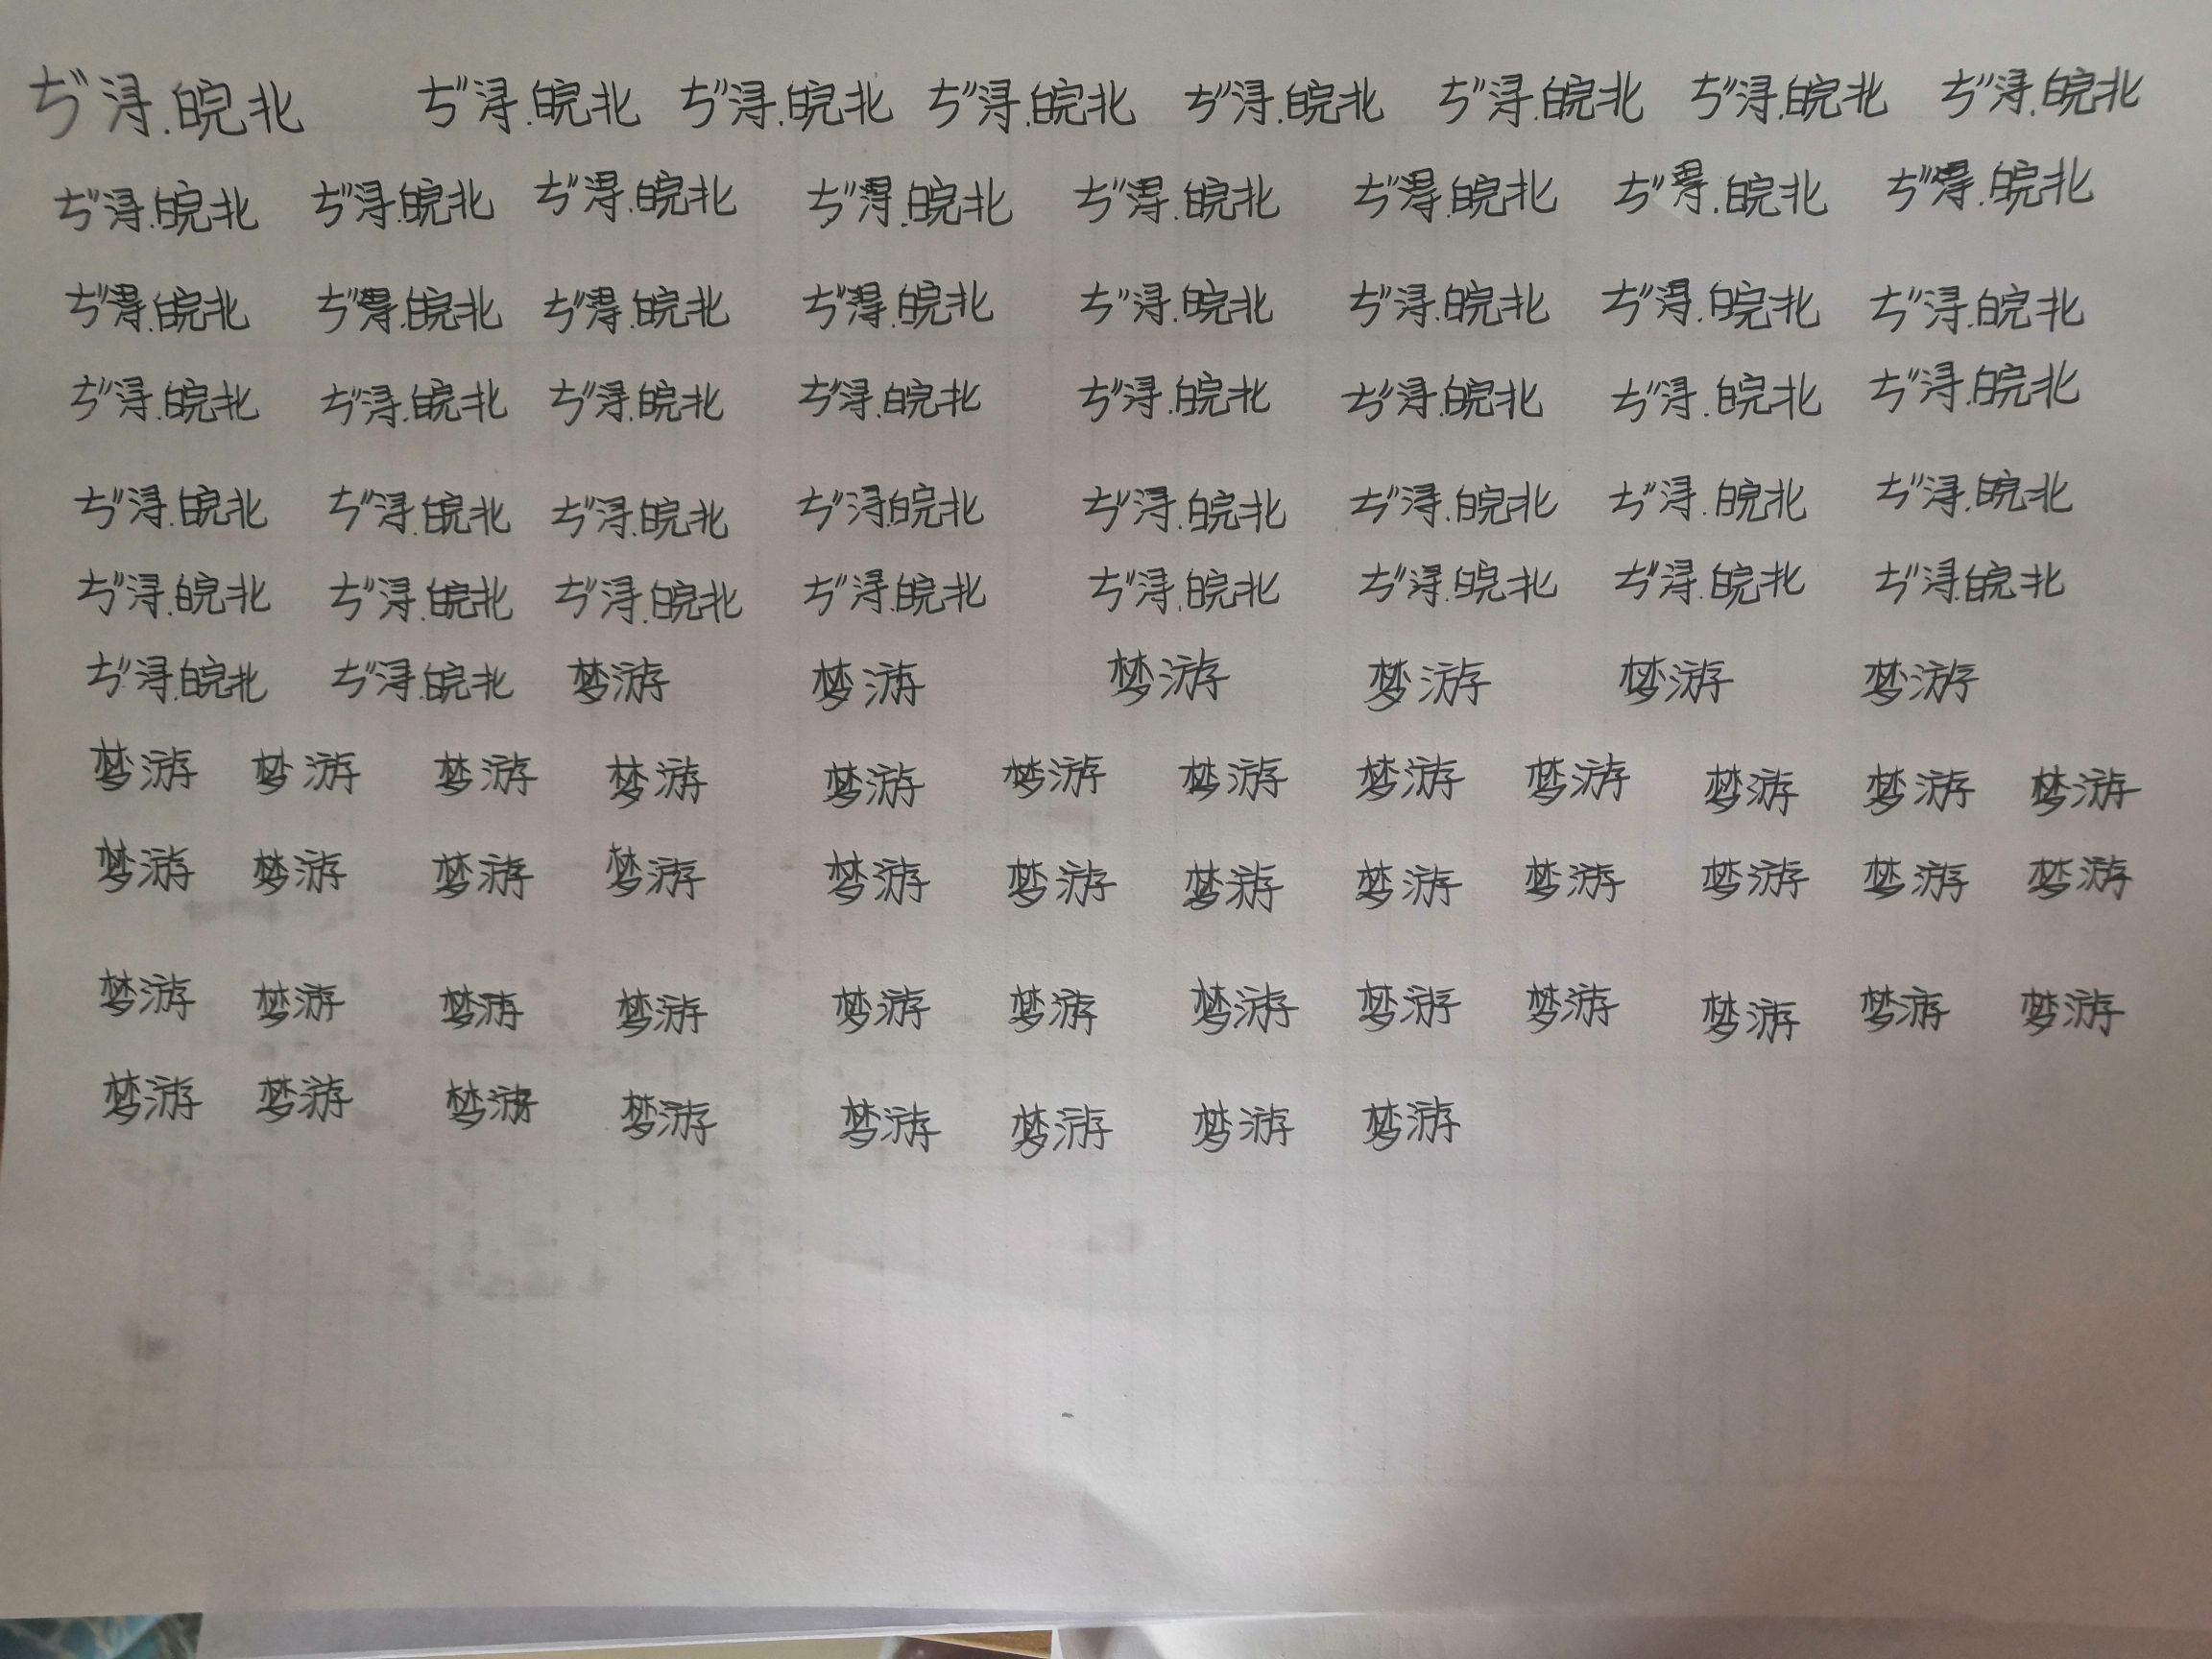 ぢ浔.皖北 ぢ浔.皖北 ぢ浔.皖北 ぢ浔.皖北 ぢ浔.皖北 ぢ浔.皖北 ぢ浔.皖北 ぢ浔.皖北
ぢ浔.皖北 ぢ浔.皖北 ぢ浔.皖北 ぢ浔.皖北 ぢ浔.皖北 ぢ浔.皖北 ぢ浔.皖北 ぢ浔.皖北
ぢ浔.皖北 ぢ浔.皖北 ぢ浔.皖北 ぢ浔.皖北 ぢ浔.皖北 ぢ浔.皖北 ぢ浔.皖北 ぢ浔.皖北
ぢ浔.皖北 ぢ浔.皖北 ぢ浔.皖北 ぢ浔.皖北 ぢ浔.皖北 ぢ浔.皖北 ぢ浔.皖北 ぢ浔.皖北
ぢ浔.皖北 ぢ浔.皖北 ぢ浔.皖北 ぢ浔.皖北 ぢ浔.皖北 ぢ浔.皖北 ぢ浔.皖北 ぢ浔.皖北
ぢ浔.皖北 ぢ浔.皖北 ぢ浔.皖北 ぢ浔.皖北 ぢ浔.皖北 ぢ浔.皖北 ぢ浔.皖北 ぢ浔.皖北
ぢ浔.皖北 ぢ浔.皖北 梦游 梦游 梦游 梦游 梦游 梦游
梦游 梦游 梦游 梦游 梦游 梦游 梦游 梦游 梦游 梦游 梦游 梦游
梦游 梦游 梦游 梦游 梦游 梦游 梦游 梦游 梦游 梦游 梦游 梦游
梦游 梦游 梦游 梦游 梦游 梦游 梦游 梦游 梦游 梦游 梦游 梦游
梦游 梦游 梦游 梦游 梦游 梦游 梦游 梦游